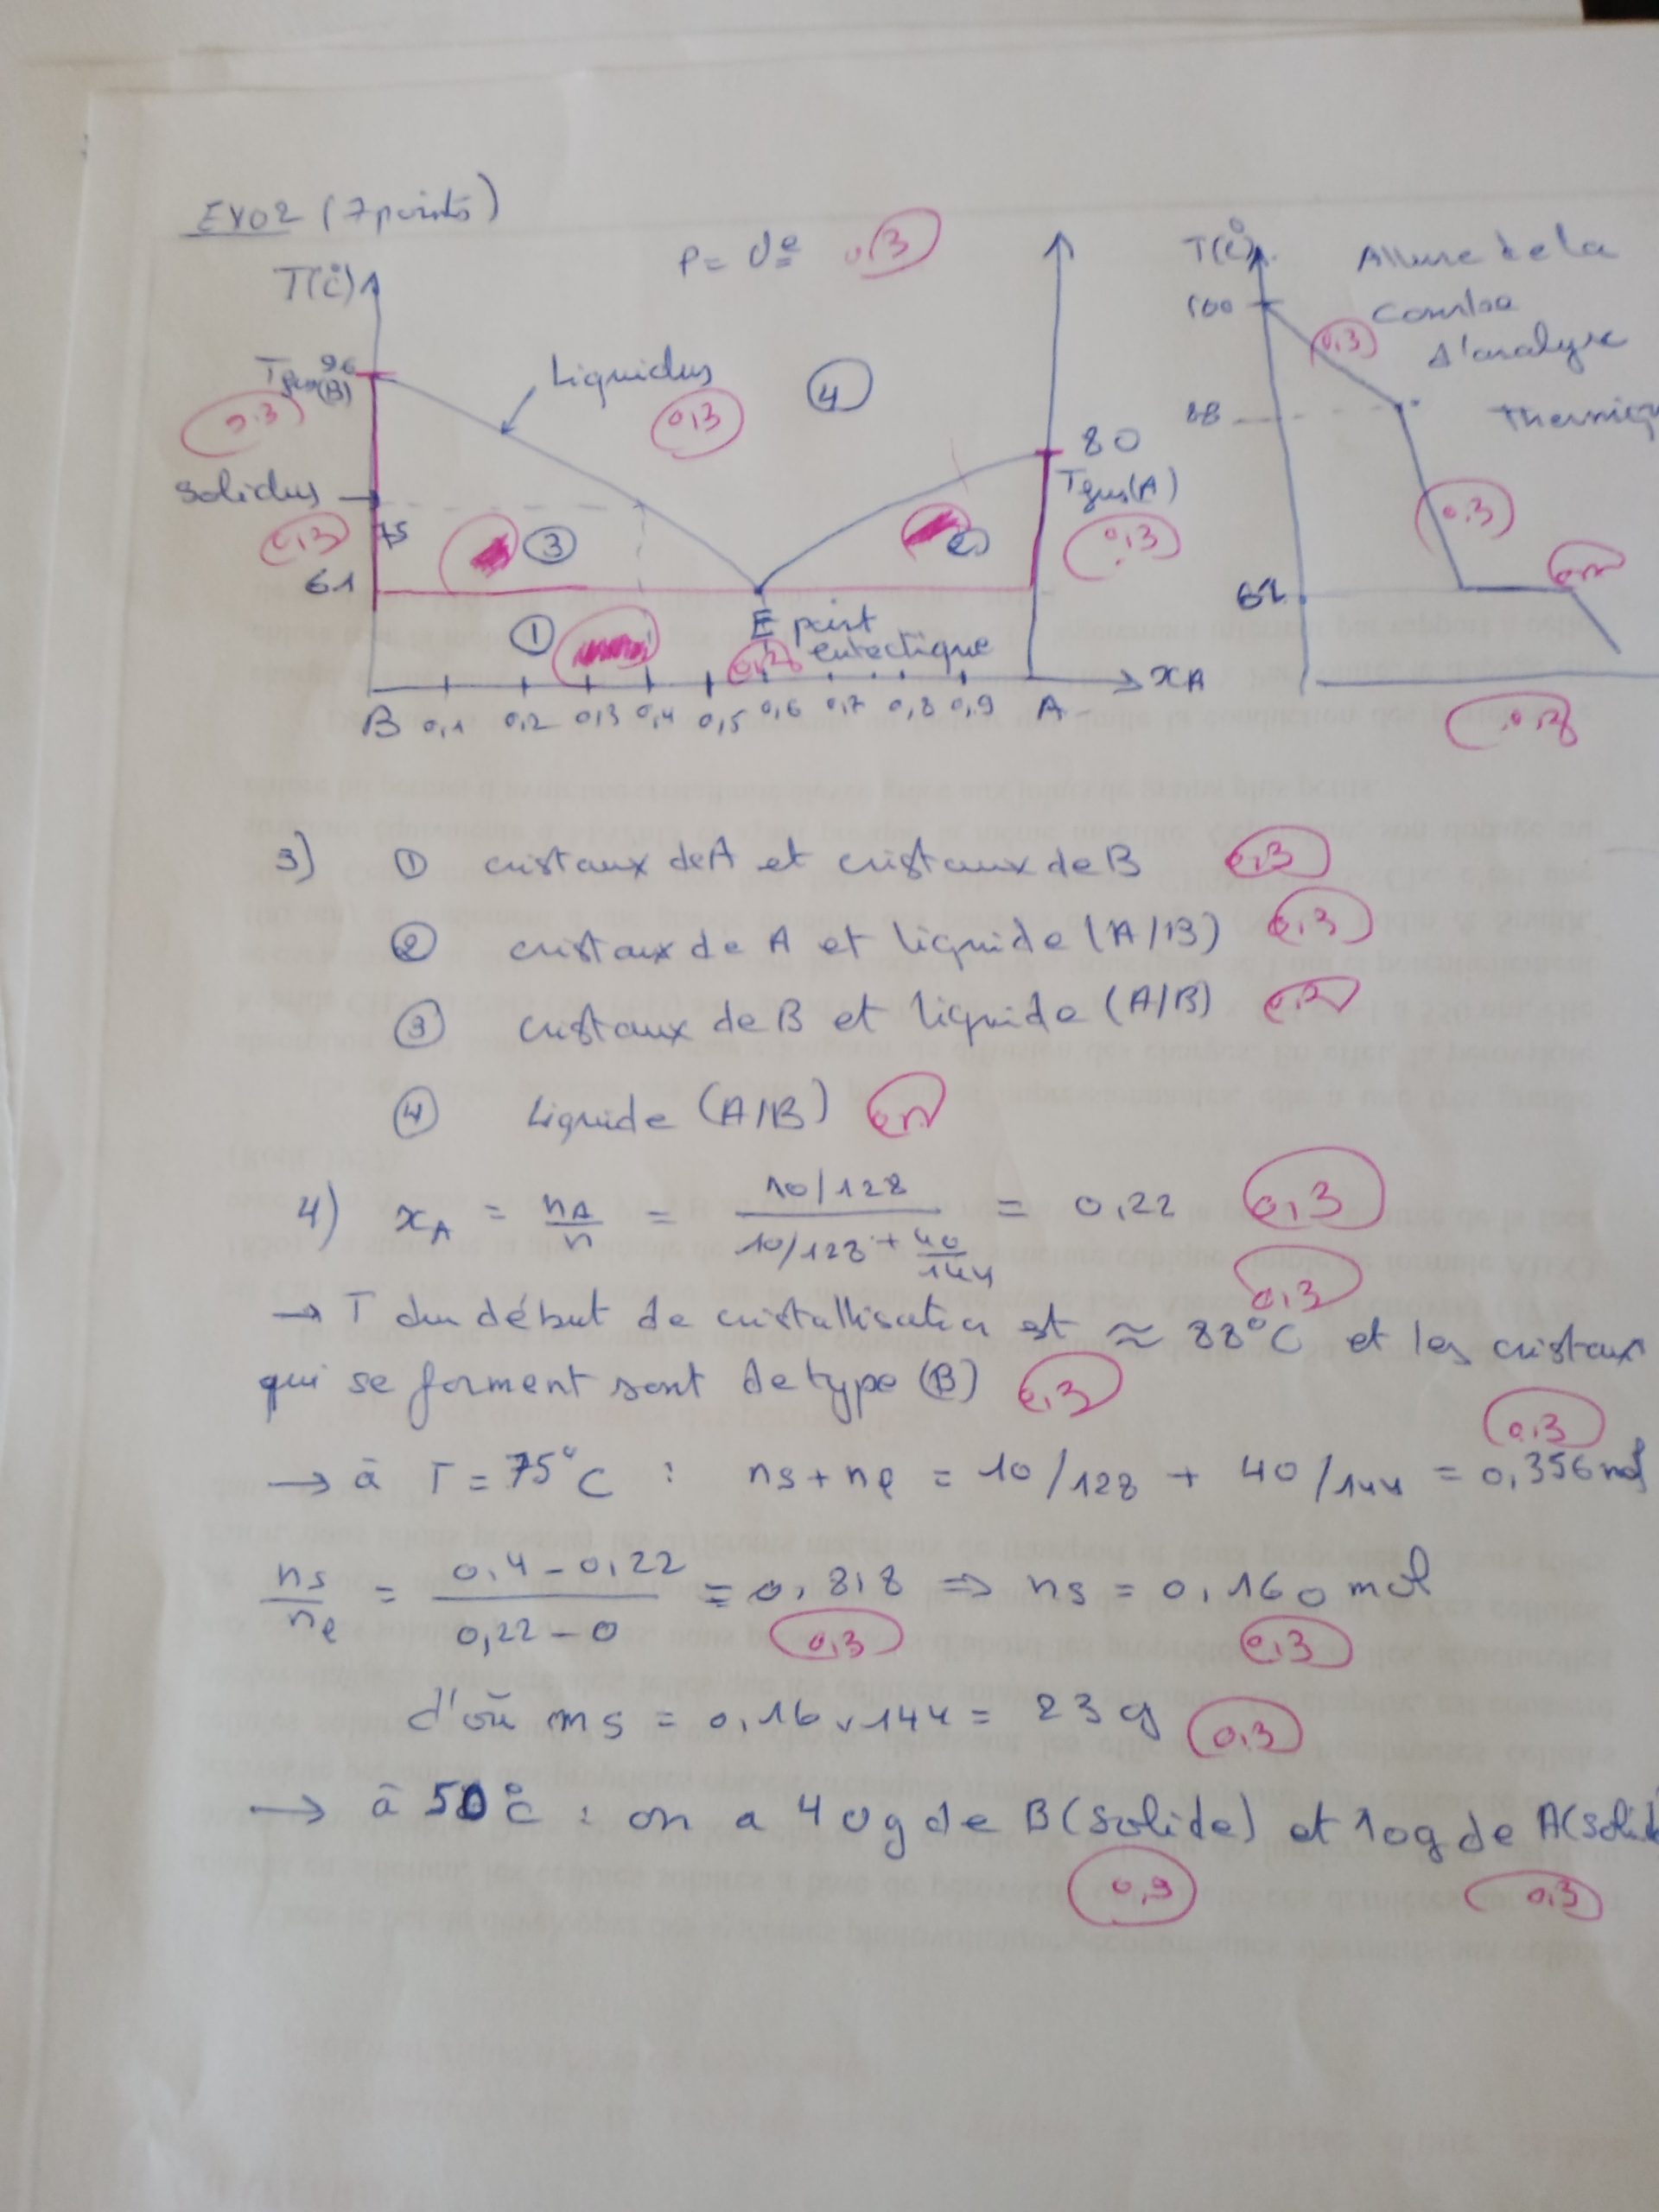 EXO2 (7 points)
P = 1 0,3
T(°C)
T(°C)
Allure de la
courbe
d'analyse
100
0,3
Liquidus
96
Tfus(B)
0,3
0,3
4
80
Tfus(A)
0,3
88
0,3
Solidus
0,3
75
3
2
61
1
E point
eutectique
0,2
xA
B 0,1 0,2 0,3 0,4 0,5 0,6 0,7 0,8 0,9 A
3) 1 cristaux de A et cristaux de B 0,3
2 cristaux de A et liquide (A/B) 0,3
3 cristaux de B et liquide (A/B)
4 Liquide (A/B)
4) xA = nA/n = 10/128 / 10/128 + 40/144 = 0,22 0,3
0,3
→ T du début de cristallisation est ≈ 88°C et les cristaux
qui se forment sont de type (B) 0,3
0,3
→ à T = 75°C : ns + nl = 10/128 + 40/144 = 0,356 mol
ns/nl = 0,4 - 0,22 / 0,22 - 0 = 0,818 ⇒ ns = 0,160 mol
0,3 0,3
d'où ms = 0,16 x 144 = 23 g 0,3
→ à 50°C : on a 40g de B (solide) et 10g de A (solid
0,3 0,3